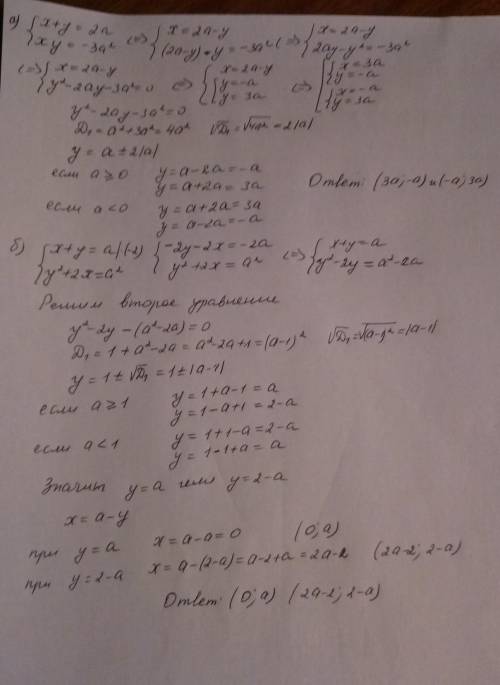 а) {x+y=2a xy=-3a² (=) {x=2a-y (2a-y)·y=-3a² (=) {x=2a-y 2ay-y²=-3a²
(=) {x=2a-y y²-2ay-3a²=0 (=) {x=2a-y [y=-a y=3a (=) [{x=3a y=-a {x=-a y=3a
y²-2ay-3a²=0
D₁=a²+3a²=4a² √D₁=√4a²=2|a|
y=a±2|a|
если a≥0 y=a-2a=-a
y=a+2a=3a Ответ: (3a;-a) и (-a;3a)
если a<0 y=a+2a=3a
y=a-2a=-a
б) {x+y=a|(-2) y²+2x=a² {-2y-2x=-2a y²+2x=a² (=) {x+y=a y²-2y=a²-2a
Решим второе уравнение
y²-2y-(a²-2a)=0
D₁=1+a²-2a=a²-2a+1=(a-1)² √D₁=√(a-1)²=|a-1|
y=1±√D₁=1±|a-1|
если a≥1 y=1+a-1=a
y=1-a+1=2-a
если a<1 y=1+1-a=2-a
y=1-1+a=a
Значит y=a или y=2-a
x=a-y
при y=a x=a-a=0 (0;a)
при y=2-a x=a-(2-a)=a-2+a=2a-2 (2a-2; 2-a)
Ответ: (0;a) (2a-2; 2-a)